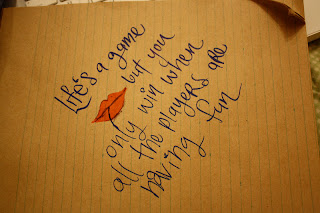 Life's a game
but you
only win when
all the players are
having fun